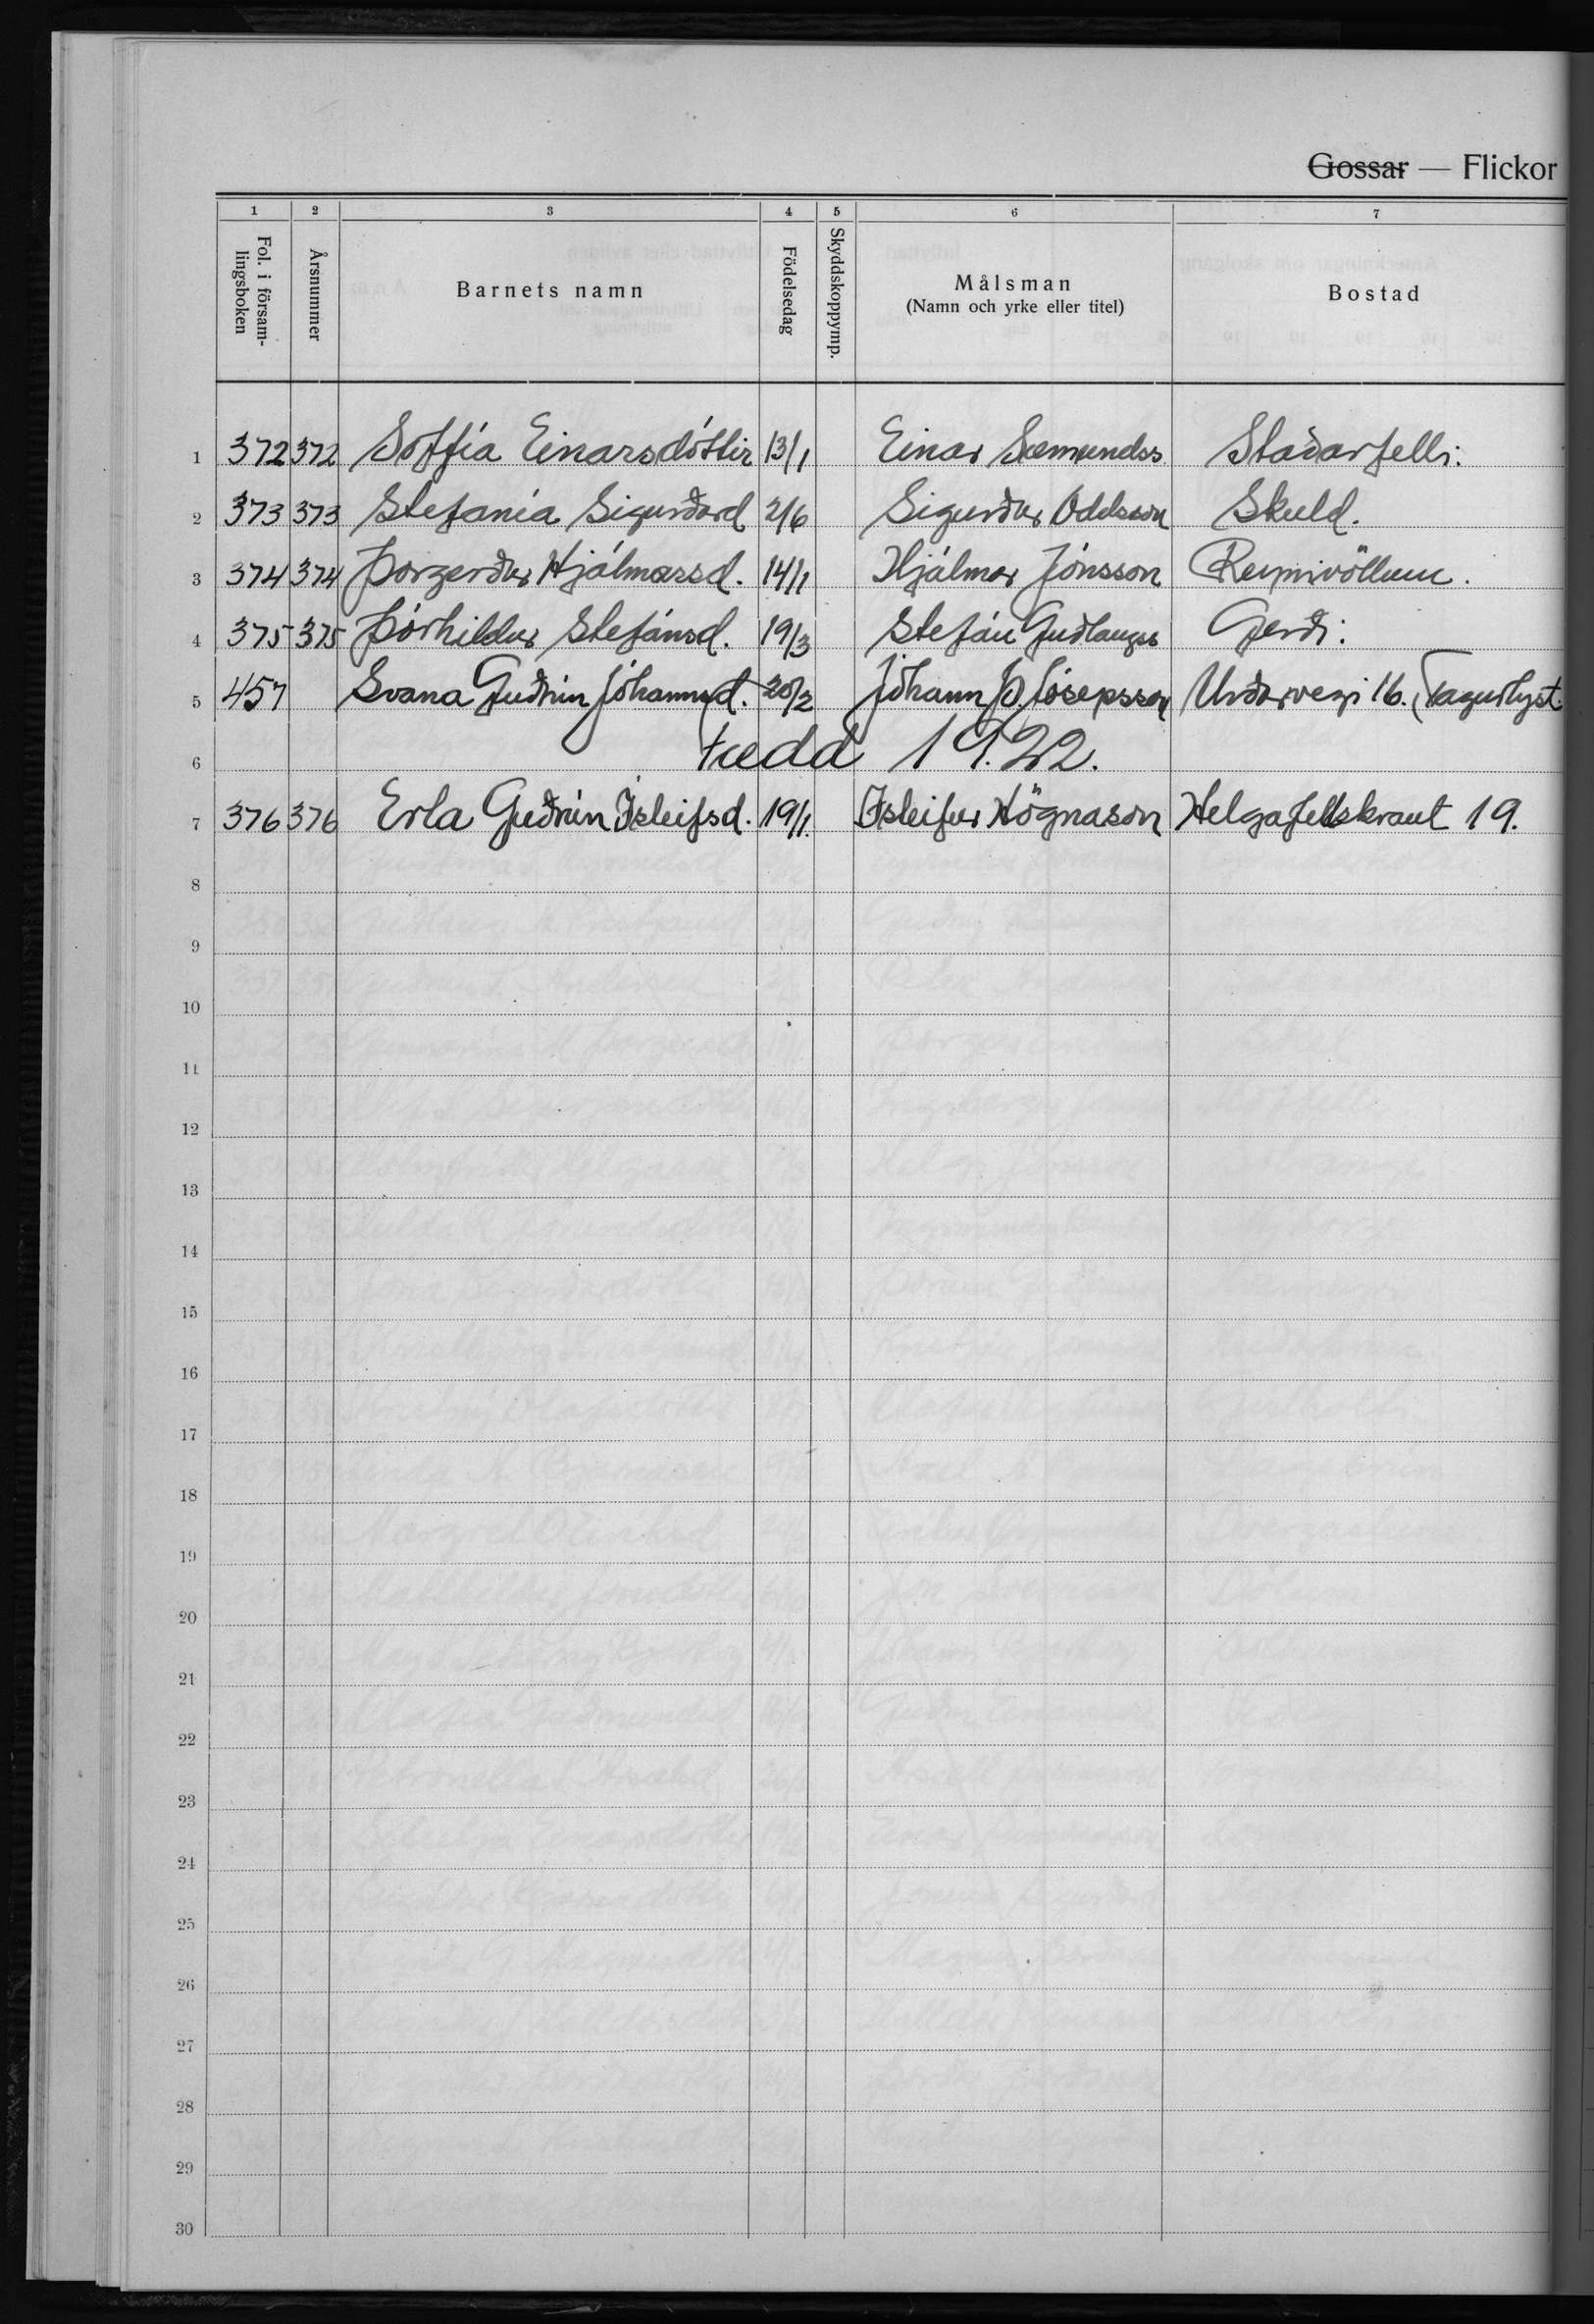 Gossar — Flickor
1 2 3 4 5 6 7
Fol. i församlingsboken Årsnummer Barnets namn Födelsedag Skyddskoppymp. Målsman (Namn och yrke eller titel) Bostad
1 372 372 Soffía Einarsdóttir 13/1 Einar Sæmundss. Staðarfelli.
2 373 373 Stefanía Sigurðard 2/6 Sigurður Oddsson Skuld.
3 374 374 Þorgerður Hjálmarsd. 14/1 Hjálmar Jónsson Reynivöllum.
4 375 375 Þórhildur Stefánsd. 19/3 Stefán Guðlaugss Gerði.
5 457 Svana Guðrún Jóhannsd. 20/2 Jóhann Þ. Jósepsson Urðavegi 16. (Fagurlyst.
6 fædd 1922.
7 376 376 Erla Guðrún Ísleifsd. 19/1 Ísleifur Högnason Helgafellsbraut 19.
8
9
10
11
12
13
14
15
16
17
18
19
20
21
22
23
24
25
26
27
28
29
30